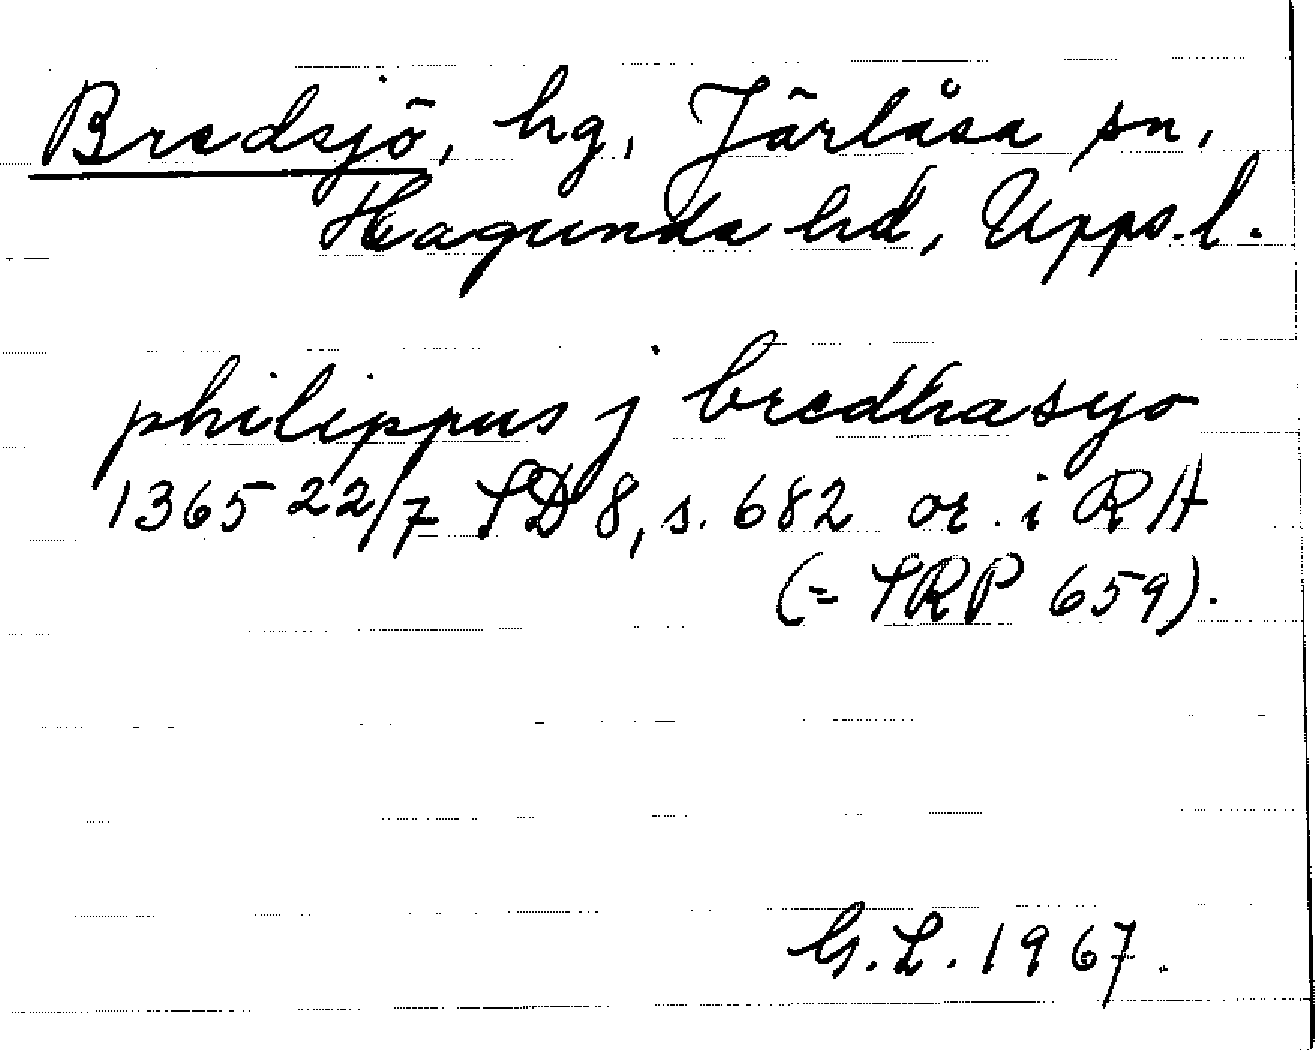 Bredsjö, hg, Järlåsa sn,
Hagunda hd, Upps.l.
philippus j bredhasyo
1365 22/7 SD 8, s. 682 or. i RA
(= SRP 659).
G.L. 1967.